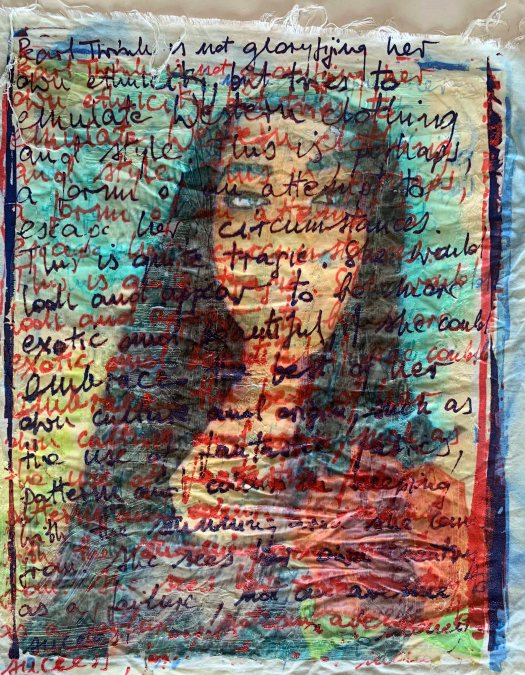 Pearl Thrink is not gloryfying her
own ethnicity, but tries to
emulate Western clothing
and style. This is perhaps,
a form of an attempt to
escape her circumstances.
This is quite tragic. She would
look and appear to be more
exotic and beautiful, if she could
embrace the best of her
own culture and origin, such as
the use of fantastic fabrics,
pattern and colour in keeping
with the stunning she
from. She sees her own country
as a failure, not an avenue to
success!
success!